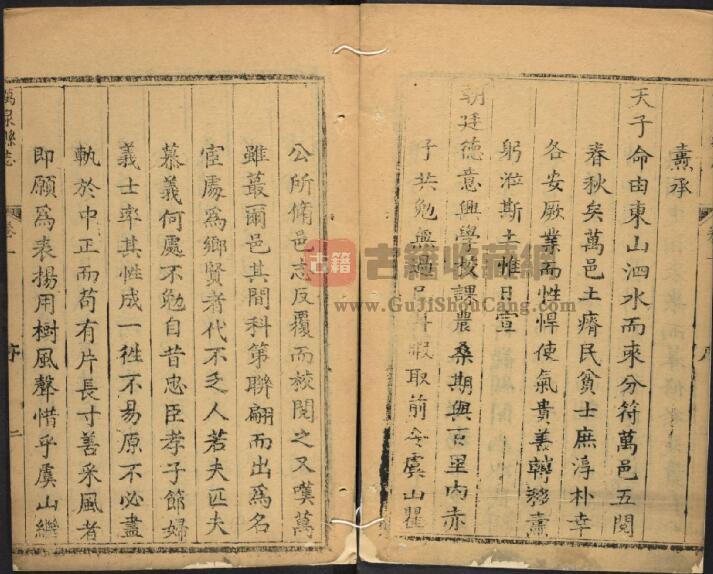 燾承
天子命由東山泗水而來分符萬邑五閱
春秋矣萬邑土瘠民貧士庶淳朴幸
各安厥業而性悍使氣貴善轉移燾
躬涖斯土惟日宣
朝廷德意興學校課農桑期與百里內赤
子共勉盖過暇取前令虞山瞿
公所脩邑志反覆而披閱之又嘆萬
雖蕞爾邑其間科第聯翩而出為名
宦處為鄉賢者代不乏人若夫匹夫
慕義何處不勉自昔忠臣孝子節婦
義士率其性成一徃不易原不必盡
軌於中正而苟有片長寸善采風者
即願為表揚用樹風聲惜乎虞山繼
萬泉縣志
卷一
序
二
古籍
古籍收藏網
www.GuJiShouCang.com